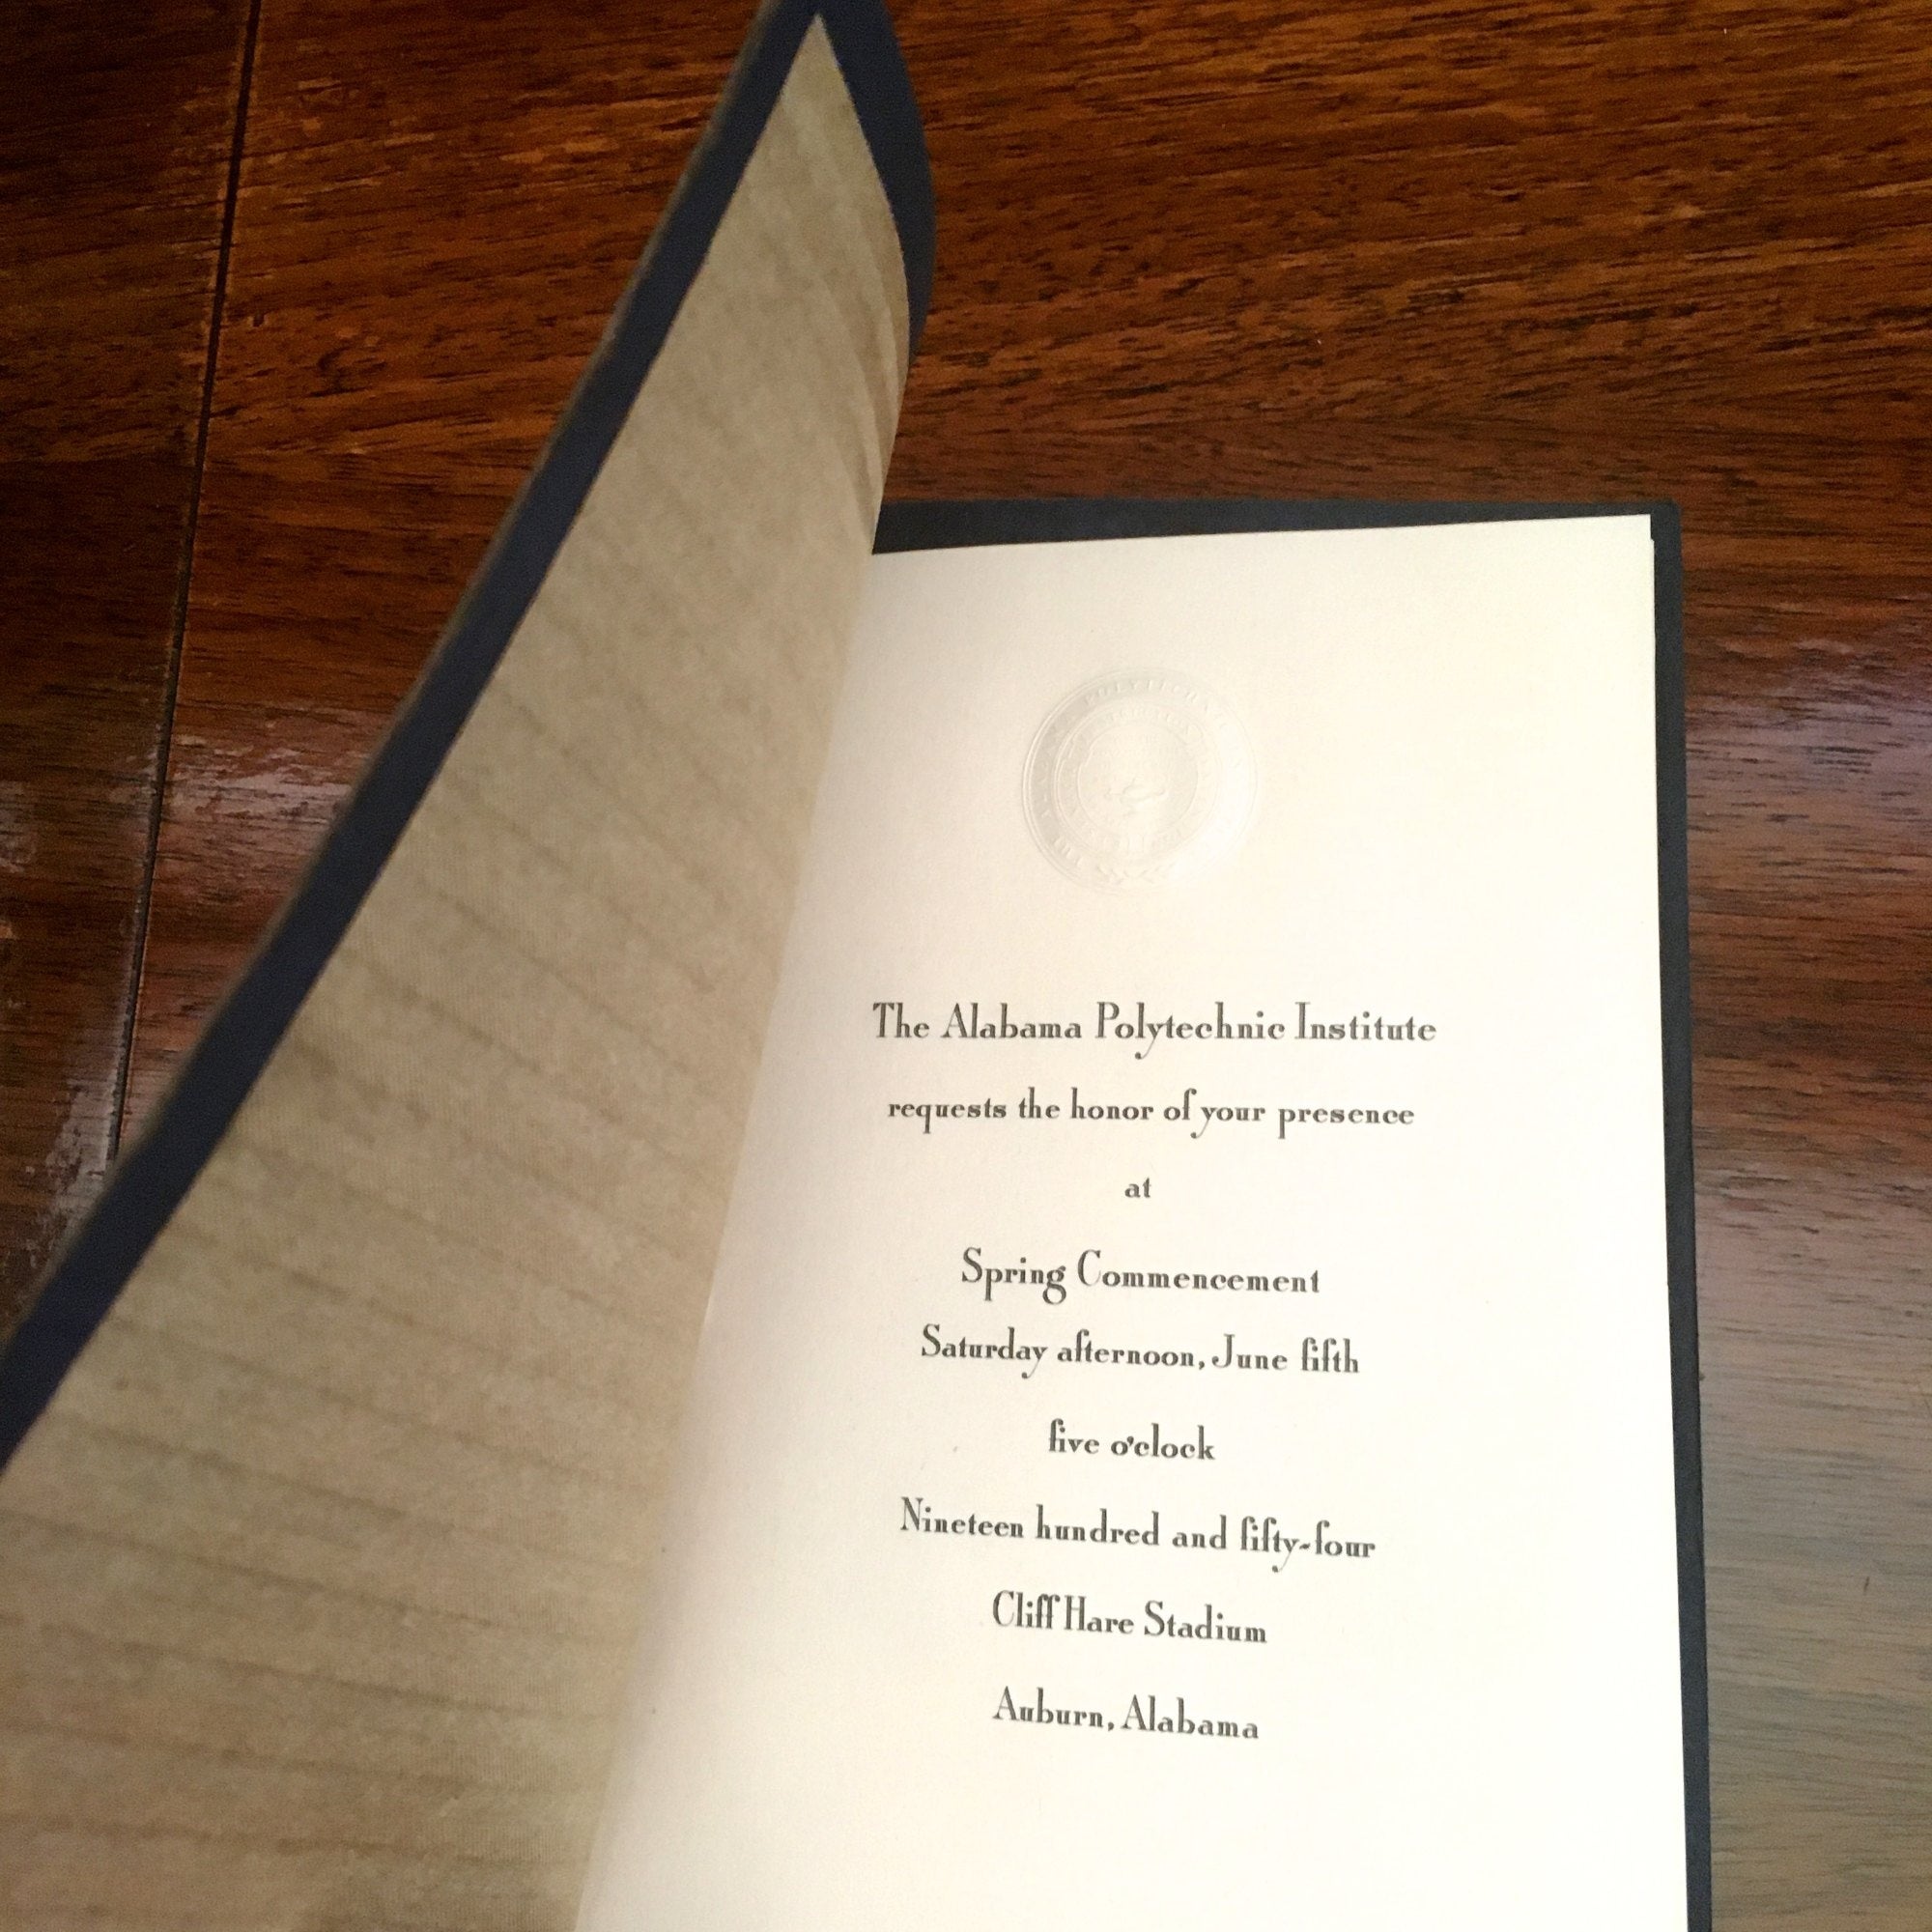 The Alabama Polytechnic Institute
requests the honor of your presence
at
Spring Commencement
Saturday afternoon, June fifth
five o'clock
Nineteen hundred and fifty-four
Cliff Hare Stadium
Auburn, Alabama